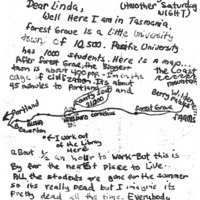 Dear Linda, (Another Saturday Night)
Well Here I am in Tasmania.
Forest Grove is a Little University
town of 10,500. Pacific University
has 1000 students. Here is a map...
After Forest Grove the Biggest
town is about 400 ppl. I'm on the
edge of civilization. It's about
45 minutes to Portland and
The Coast
Portland
Forest Grove
Hillsboro
Cornelius
Beaverton
Wilderness
Berry
← I work out
of the Library
Here
about ½ an hour to work - But this is
By far the nearest place to Live..
All the students are gone for the summer
so its really dead but I imagine its
pretty dead all the time. Everybody